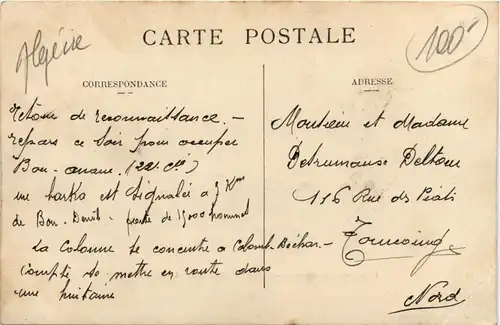 Algérie
100-
CARTE POSTALE
CORRESPONDANCE
ADRESSE
Retour de reconnaissance. -
repars ce soir pour occuper
Bou-anane. (22e Cie)
une harka est signalée à 9 Km
de Bou-Denib - forte de 15000 hommes
La Colonne se concentre à Colomb-Béchar -
Compte se mettre en route dans
une huitaine
Monsieur et Madame
Deltour
116 Rue des Piats
Tourcoing
Nord